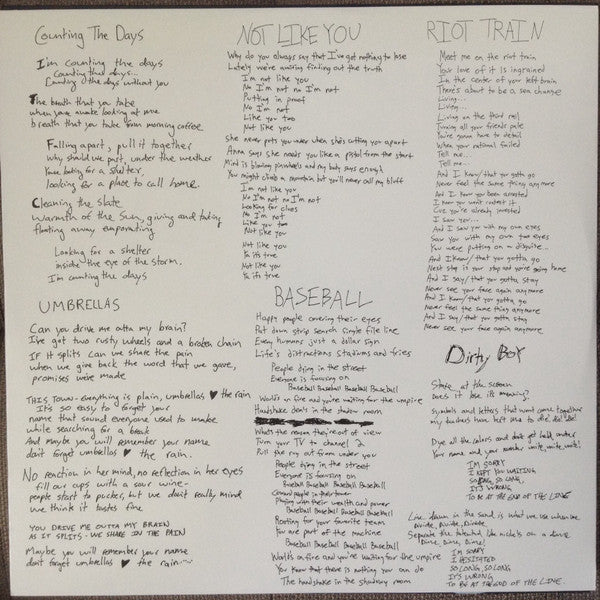 Counting The Days
I'm counting the days
Counting the days...
Counting the days without you
The breath that you take
when your awake looking at me
breath that you take from morning coffee
Falling apart, pull it together
Why should we part, under the weather
looking for a shelter,
looking for a place to call home.
Cleaning the slate
Warmth of the Sun, giving and fading
floating away evaporating
Looking for a shelter
inside the eye of the storm.
I'm counting the days
UMBRELLAS
Can you drive me outta my brain?
I've got two rusty wheels and a broken chain
IF it splits can we share the pain
when we give back the word that we gave,
promises we're made
THIS TOWN-everything is plain, umbrellas ♥ the rain
It's so easy to forget your
name that sound everyone used to make
while searching for a break
And maybe you will remember your name
don't forget umbrellas ♥ the rain.
No reaction in her mind, no reflection in her eyes
fill our cups with a sour wine-
people start to pucker, but we don't really mind
we think it tastes fine
YOU DRIVE ME OUTTA MY BRAIN
AS IT SPLITS-WE SHARE IN THE PAIN
Maybe you will remember your name
don't forget umbrellas ♥ the rain~
NOT LIKE YOU
Why do you always say that I've got nothing to lose
Lately we're waiting finding out the truth
I'm not like you
No I'm not no I'm not
Putting in proof
No I'm not
Like you two
Not like you
She never puts you under when she's cutting you apart
Anna says she needs you like a pistol from the start
Mind is blowing pinwheels and my body says enough
You might climb a mountain but you'll never call my bluff
I'm not like you
No I'm not no I'm not
Looking for clues
No I'm not
Like you two
Not like you
Not like you
Ya it's true
Not like you
Ya it's true
BASEBALL
Happy people covering their eyes
Put down strip search single file line
Every humans just a dollar sign
Life's distractions stadiums and fries
People dying in the street
Everyone is focusing on
Baseball Baseball Baseball Baseball
World's on fire and you're waiting for the umpire
Handshake deals in the shadow room
What's the reason they're out of view
Turn your TV to channel 2
Pull the rug out from under you
People dying in the street
Everyone is focusing on
Baseball Baseball Baseball Baseball
people in their tower
Playing with their wealth and power
Baseball Baseball Baseball Baseball
Rooting for your favorite team
You are part of the machine
Baseball Baseball Baseball Baseball
World's on fire and you're waiting for the umpire
You know that there is nothing you can do
The handshake in the shadowy room
RIOT TRAIN
Meet me on the riot train
Your love of it is ingrained
In the center of your left brain
There's about to be a sea change
Living...
Living...
Living on the third rail
Turning all your friends pale
You're gonna have to detail
When your rational failed
Tell me...
Tell me...
And I know/that you gotta go
Never feel the same thing anymore
And I know you been arrested
I know you won't contest it
Cuz you're already invested
I saw you...
And I saw you with my own eyes
Saw you with my own two eyes
You were putting on a disguise...
And I know/that you gotta go
Next stop is your stop and you're going home
And I say/that you gotta stay
Never see your face again anymore
And I know/that you gotta go
Never feel the same thing anymore
And I say/that you gotta stay
Never see your face again anymore
Dirty Box
Stare at the screen
Does it lose its meaning?
Symbols and letters that went come together
my business have left me to die, die, die!
Dye all the colors and don't get held under
Your name and your number, write, write, write!
I'M SORRY
I KEPT YOU WAITING
SO LONG, SO LONG,
IT'S WRONG
TO BE AT THE END OF THE LINE
Line down in the sand is what we use when we
Divide, Divide, Divide
Separate the talented like nickels on a dime
Dime, Dime, Dime!
I'M SORRY
I HESITATED
SO LONG, SO LONG
IT'S WRONG
TO BE AT THE END OF THE LINE.